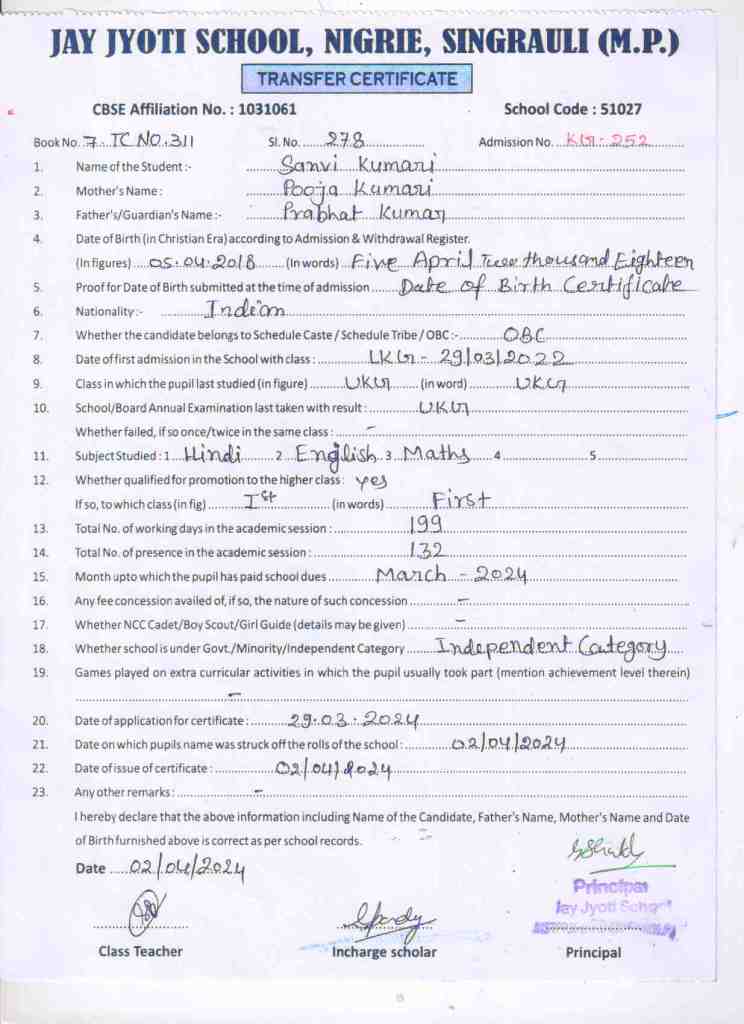 JAY JYOTI SCHOOL, NIGRIE, SINGRAULI (M.P.)
TRANSFER CERTIFICATE
CBSE Affiliation No. : 1031061 School Code : 51027
Book No. 7. TC NO. 311 Sl. No. 278 Admission No. KG - 252
1. Name of the Student :- Sanvi Kumari
2. Mother's Name : Pooja Kumari
3. Father's/Guardian's Name :- Prabhat Kumar
4. Date of Birth (in Christian Era) according to Admission & Withdrawal Register.
(In figures) 05.04.2018 (In words) Five April Two thousand Eighteen
5. Proof for Date of Birth submitted at the time of admission Date of Birth Certificate
6. Nationality :- Indian
7. Whether the candidate belongs to Schedule Caste / Schedule Tribe / OBC :- OBC
8. Date of first admission in the School with class : LKG - 29/03/2022
9. Class in which the pupil last studied (in figure) UKG (in word) UKG
10. School/Board Annual Examination last taken with result : UKG
Whether failed, if so once/twice in the same class : -
11. Subject Studied : 1 Hindi 2 English 3 Maths 4 5
12. Whether qualified for promotion to the higher class : yes
If so, to which class (in fig) Ist (in words) First
13. Total No. of working days in the academic session : 199
14. Total No. of presence in the academic session : 132
15. Month upto which the pupil has paid school dues March - 2024
16. Any fee concession availed of, if so, the nature of such concession -
17. Whether NCC Cadet/Boy Scout/Girl Guide (details may be given) -
18. Whether school is under Govt./Minority/Independent Category Independent Category
19. Games played on extra curricular activities in which the pupil usually took part (mention achievement level therein)
-
20. Date of application for certificate : 29.03.2024
21. Date on which pupils name was struck off the rolls of the school : 02/04/2024
22. Date of issue of certificate : 02/04/2024
23. Any other remarks : -
I hereby declare that the above information including Name of the Candidate, Father's Name, Mother's Name and Date
of Birth furnished above is correct as per school records.
Date 02/04/2024
Principal
Jay Jyoti School
Class Teacher Incharge scholar Principal